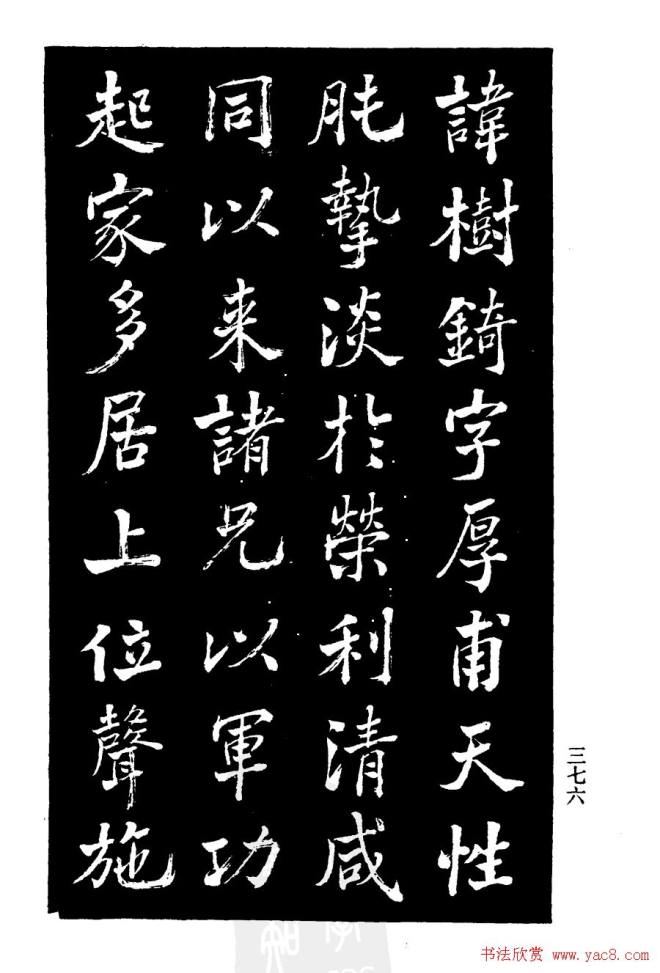 諱樹錡字厚甫天性
肫摯淡於榮利清咸
同以来諸兄以軍功
起家多居上位聲施
三七六
书法欣赏 www.yac8.com